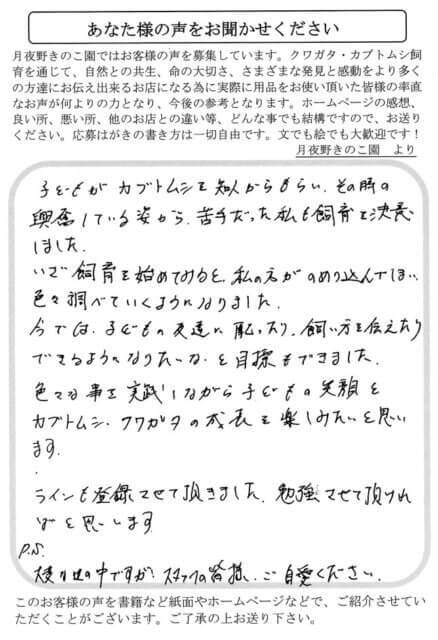 あなた様の声をお聞かせください
月夜野きのこ園ではお客様の声を募集しています。クワガタ・カブトムシ飼
育を通じて、自然との共生、命の大切さ、さまざまな発見と感動をより多く
の方達にお伝え出来るお店になる為に実際に用品をお使い頂いた皆様の率直
なお声が何よりの力となり、今後の参考となります。ホームページの感想、
良い所、悪い所、他のお店との違い等、どんな事でも結構ですので、お送り
ください。応募はがきの書き方は一切自由です。文でも絵でも大歓迎です！
月夜野きのこ園　より
子どもがカブトムシを知人からもらい、その時の
興奮している姿から、苦手だった私も飼育を決意
しました。
いざ飼育を始めてみると、私の方がのめり込んでしまい
色々調べていくようになりました。
今では、子どもの友達に配ったり、飼い方を伝えたり
できるようになりたいな と目標もできました。
色々な事を実践しながら子どもの笑顔と
カブトムシ・クワガタの成長を楽しみたいと思い
ます。
ラインも登録させて頂きました。勉強させて頂けれ
ばと思います
P.S.
世の中ですが、スタッフの皆様、ご自愛ください。
このお客様の声を書籍など紙面やホームページなどで、ご紹介させてい
ただくことがございます。ご了承の上お送り下さい。